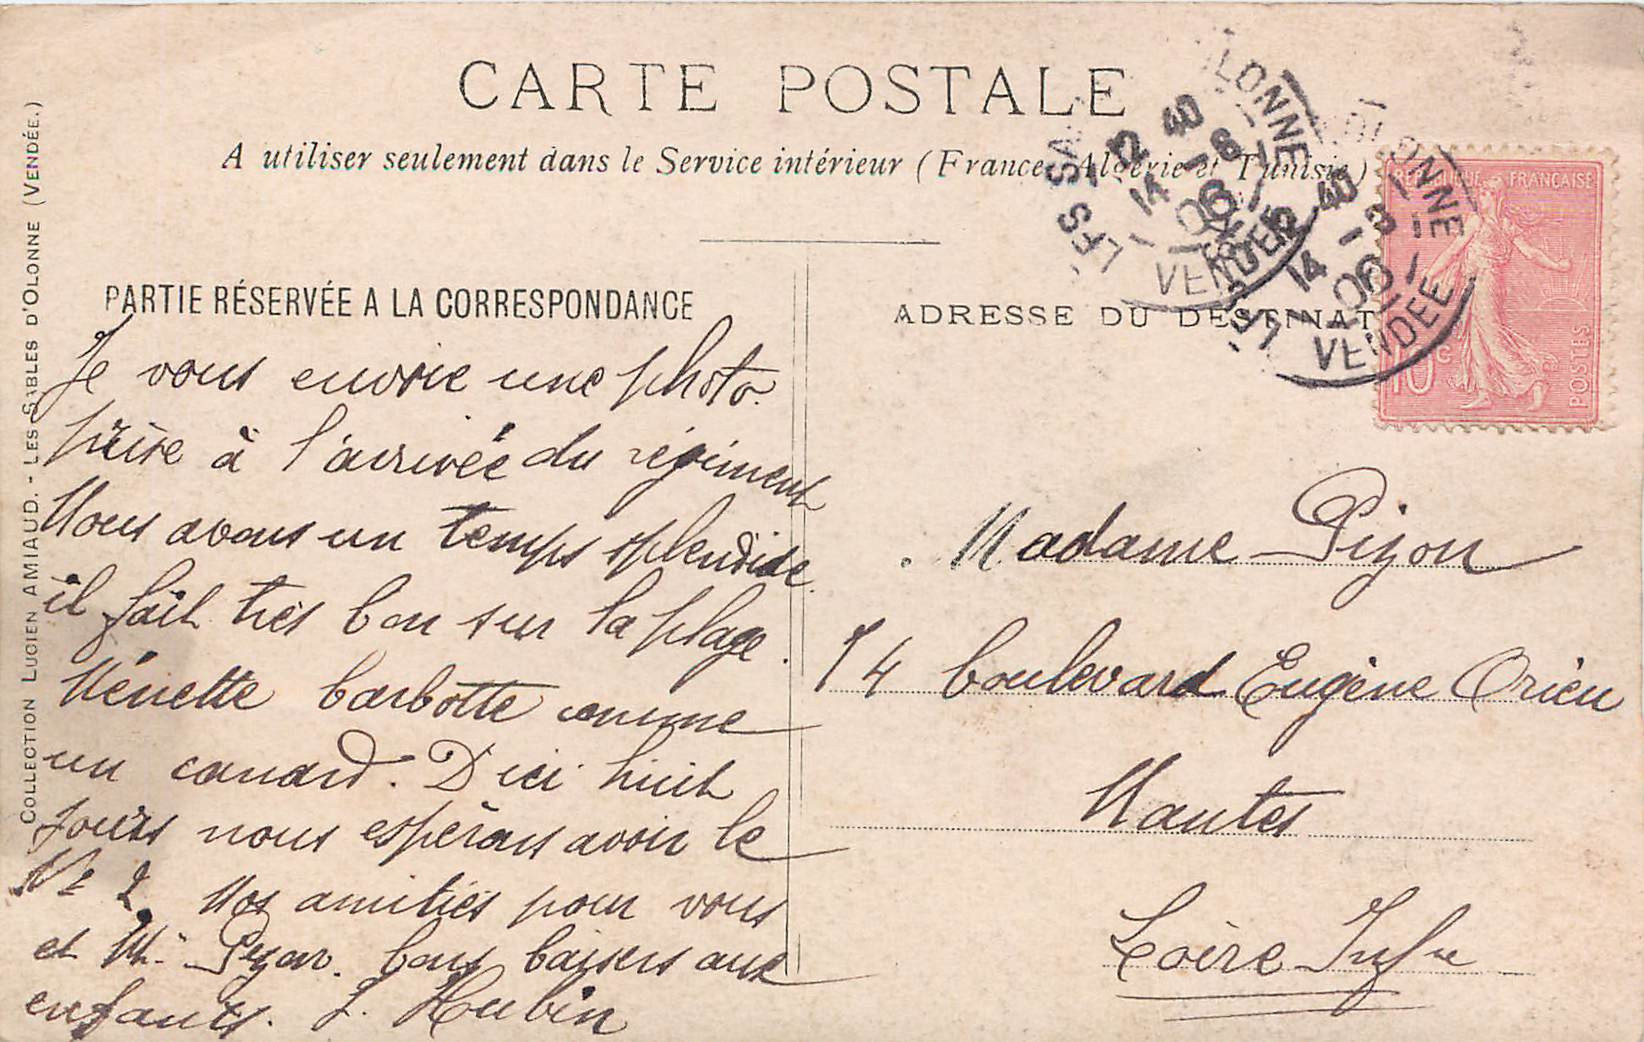 CARTE POSTALE
A utiliser seulement dans le Service intérieur (France, Algérie et Tunisie)
COLLECTION LUCIEN AMIAUD. - LES SABLES D'OLONNE (VENDÉE.)
PARTIE RÉSERVÉE A LA CORRESPONDANCE
Je vous envoie une photo
prise à l'arrivée du régiment
Nous avons un temps splendide
il fait très bon sur la plage.
Nénette barbotte comme
un canard. D'ici huit
jours nous espérons avoir le
No 2. Nos amitiés pour vous
et Mr. bons baisers aux
enfants. Hubin
ADRESSE DU DESTINAT
Madame Pijon
14 boulevard Eugène Orieu
Nantes
Loire Infre
RÉPUBLIQUE FRANÇAISE
10 c
POSTES
LES SA OLONNE
12 40
14 - 8
06
VENDÉE
OLONNE
12 40
14 - 8
06
VENDEE